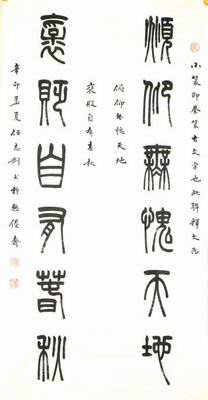 小篆即秦篆古文字也此聯釋文為
頫仰無愧天地
俯仰無愧天地
褒貶自有春秋
褒貶自有春秋
辛卯孟夏任志剛書於